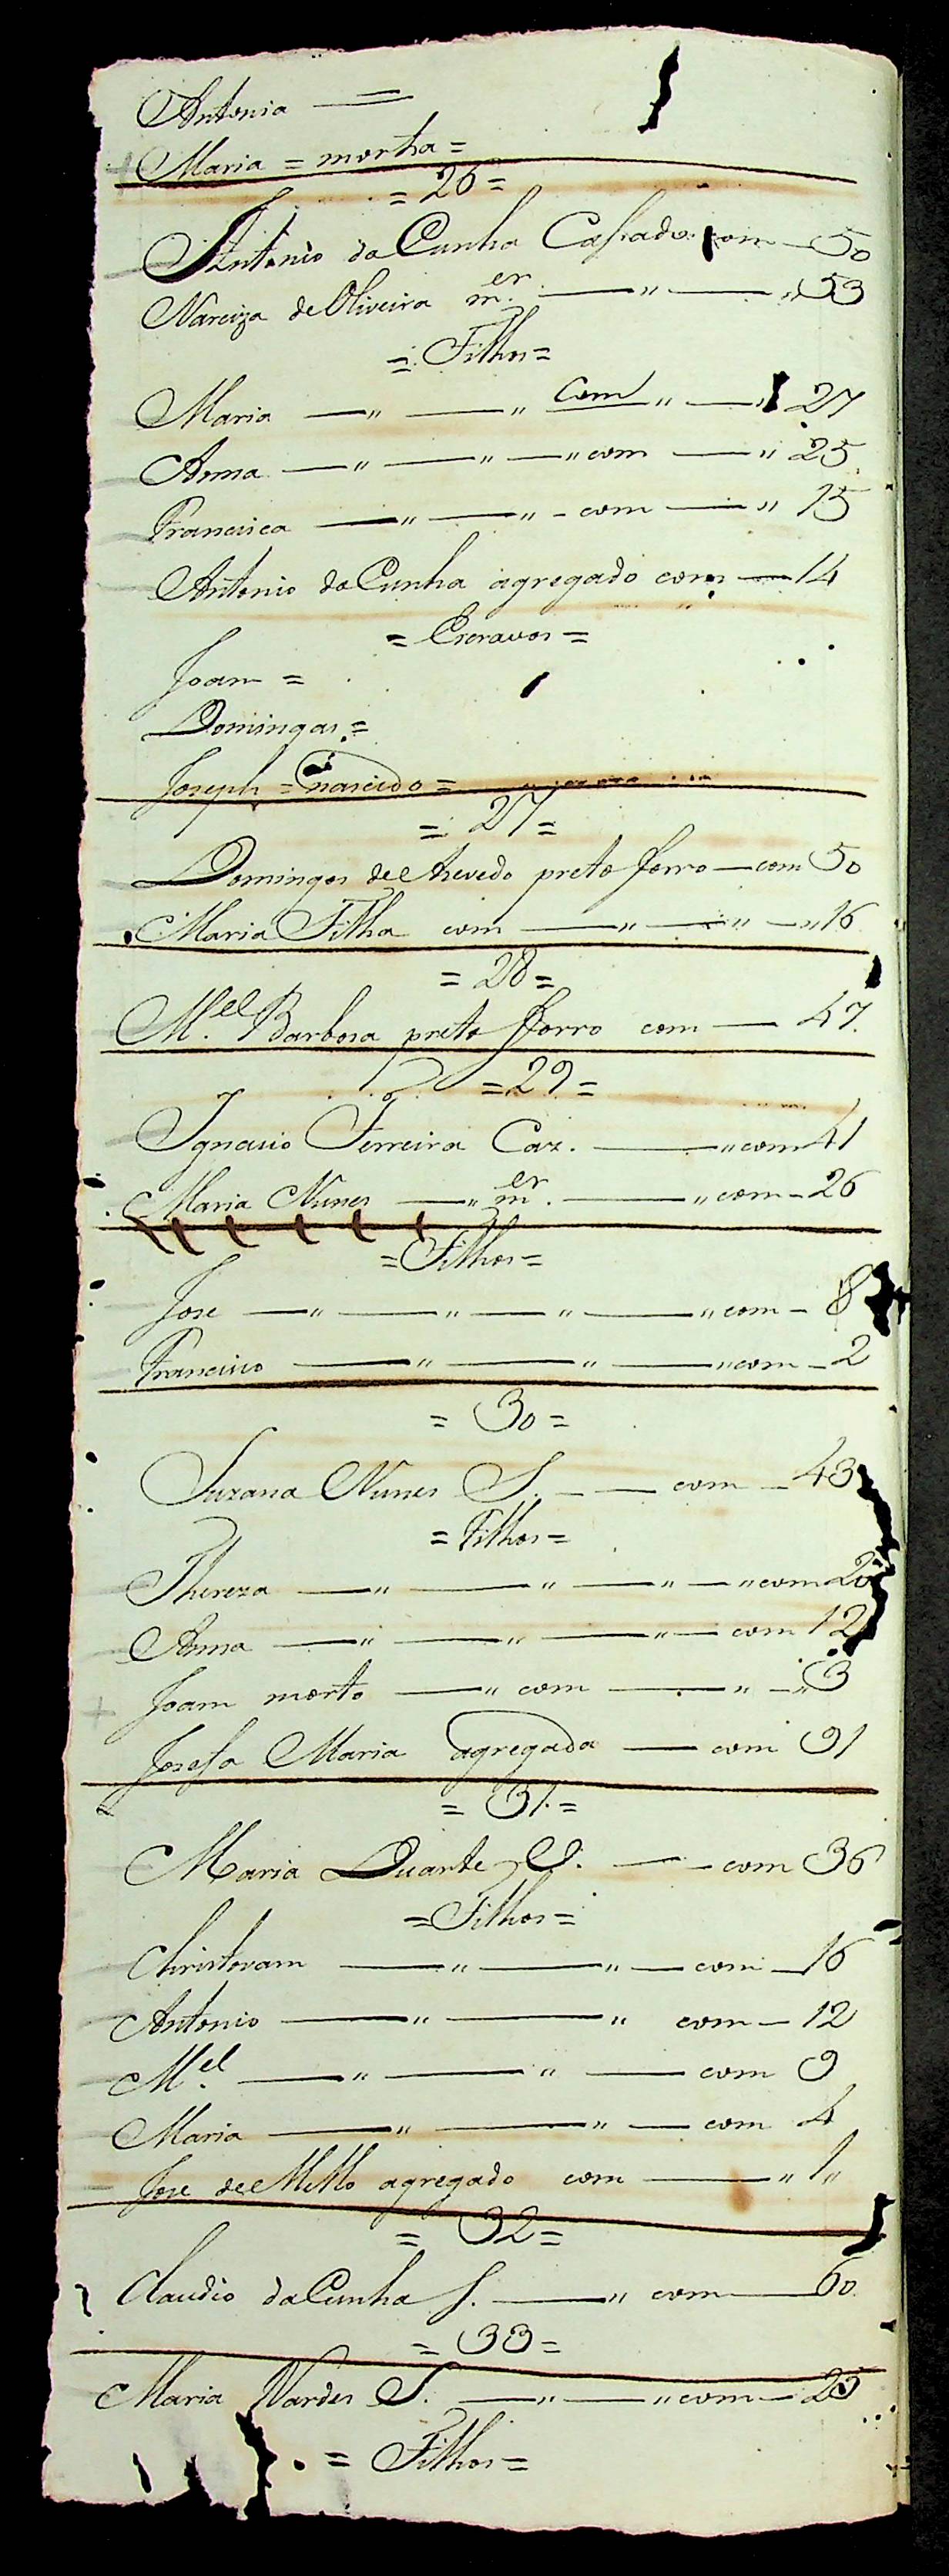 Antonia =
Maria = morta =
= 26 =
Antonio da Cunha Casado com — 50
Narciza de Oliveira m.er — " — " 53
= Filhos =
Maria — " — " com " — " 27
Anna — " — " — " com — " 25
Francisca — " — " - com — " 15
Antonio da Cunha agregado com — 14
= Escravos =
Joam =
Domingas =
Joseph = nascido =
= 27 =
Domingos de Azevedo preto forro — com 50
Maria Filha com — " — " — " 16
= 28 =
M.el Barbosa preto forro com — 47.
= 29 =
Ignacio Ferreira Caz. — " com 41
Maria Nunes — " m.er — " com - 26
= Filhos =
Jose — " — " — " — " com - 8
Francisco — " — " — " com - 2
= 30 =
Suzana Nunes S. - — com - 43
= Filhos =
Thereza — " — " — " — " com
Anna — " — " — " — com 12
Joam morto — " com — " - " 3
Josefa Maria agregada — com 91
= 31. =
Maria Duarte V. — - com 36
= Filhos =
Christovam — " — " — com - 16
Antonio — " — " com - 12
M.el — " — " — com 9
Maria — " — " — com 4
Jose de Mello agregado com — " 1 "
= 32 =
Claudio da Cunha S. — " com — 60
= 33 =
Maria Nardes S. — " — " com - 25
= Filhos =